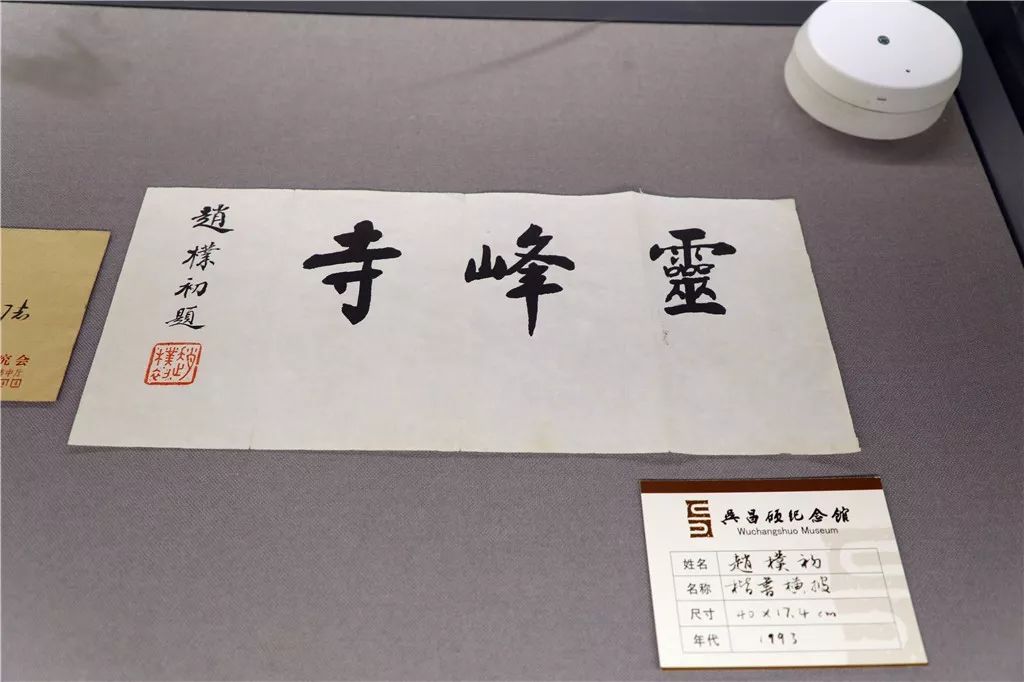 靈峰寺
趙樸初題
吴昌硕纪念馆
Wuchangshuo Museum
姓名 趙樸初
名称 楷書横披
尺寸 40×17.4cm
年代 1993
究会